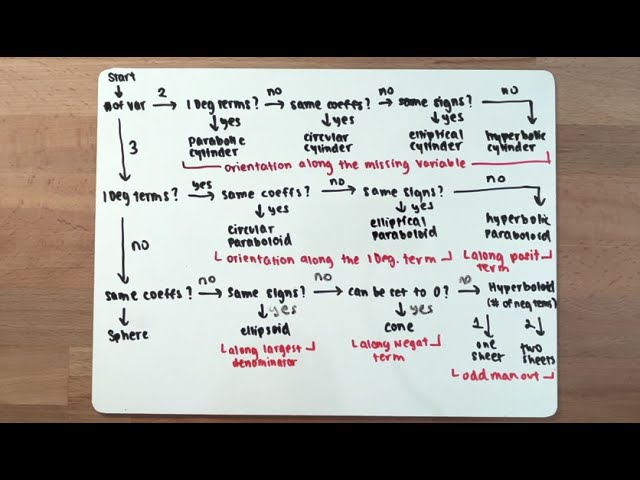 Start
# of var 2 1 Deg terms? no same coeffs? no same signs? no
yes yes yes
parabolic cylinder circular cylinder elliptical cylinder hyperbolic cylinder
orientation along the missing variable
3
1 Deg terms? yes same coeffs? no same signs? no
yes yes
circular paraboloid elliptical paraboloid hyperbolic paraboloid
orientation along the 1 Deg. term along posit term
no
same coeffs? no same signs? no can be set to 0? no Hyperboloid (# of neg tems)
yes yes 1 2
Sphere ellipsoid cone one sheet two sheets
along largest denominator along Negat term odd man out